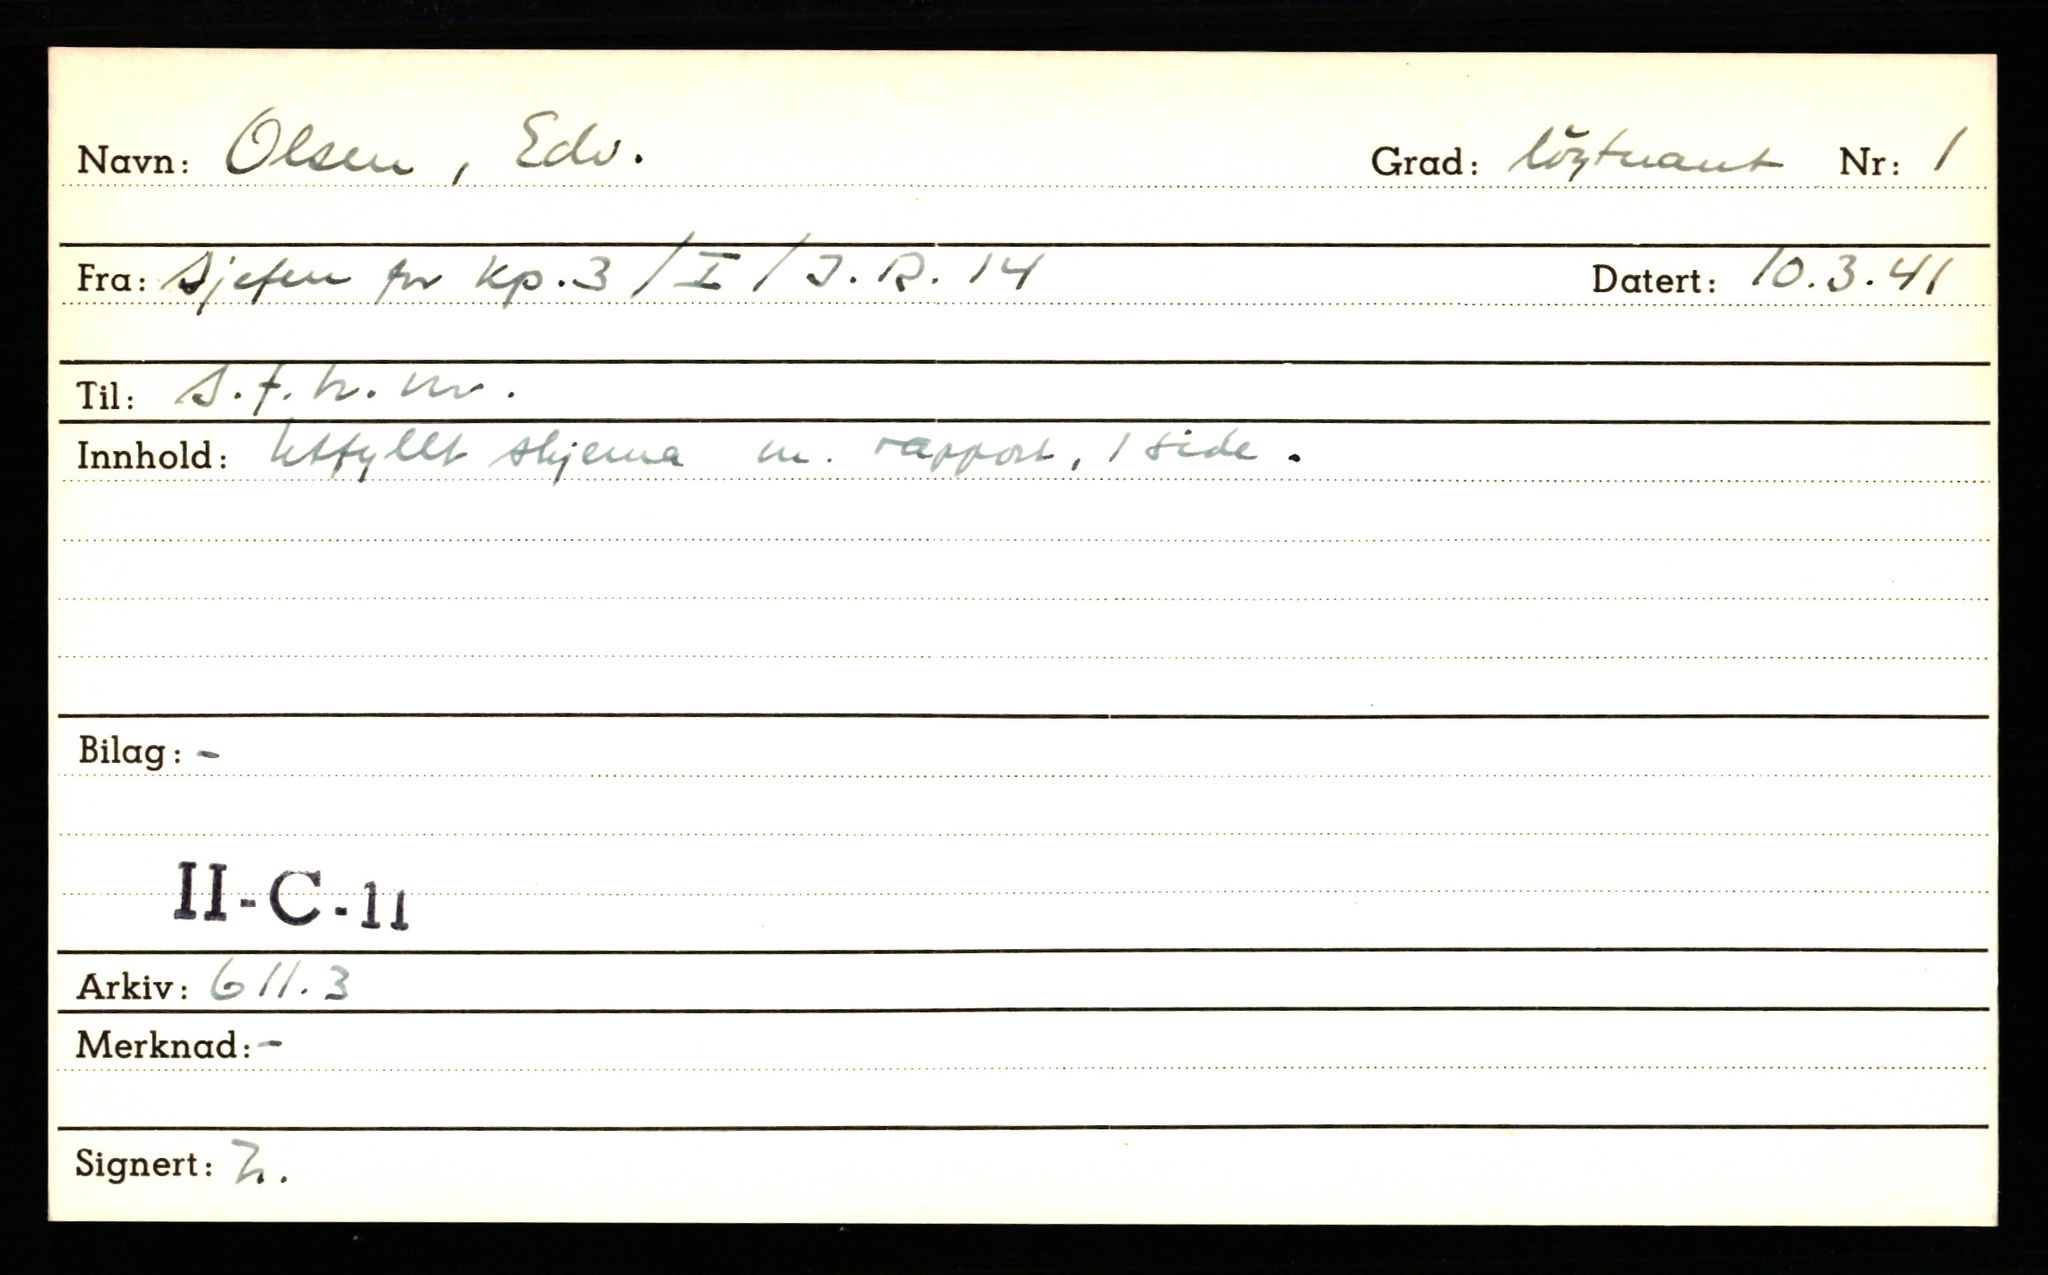 Navn: Olsen, Edv. Grad: löytnant Nr: 1
Fra: Sjefen for Kp.3/I/I.R.14 Datert: 10.3.41
Til: S.f.h.m.
Innhold: Utfyllt skjema m. rapport, 1 side.
Bilag: -
II-C-11
Arkiv: 611.3
Merknad: -
Signert: